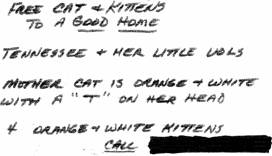 FREE CAT & KITTENS
TO A GOOD HOME
TENNESSEE & HER LITTLE VOLS
MOTHER CAT IS ORANGE & WHITE
WITH A "T" ON HER HEAD
4 ORANGE & WHITE KITTENS
CALL